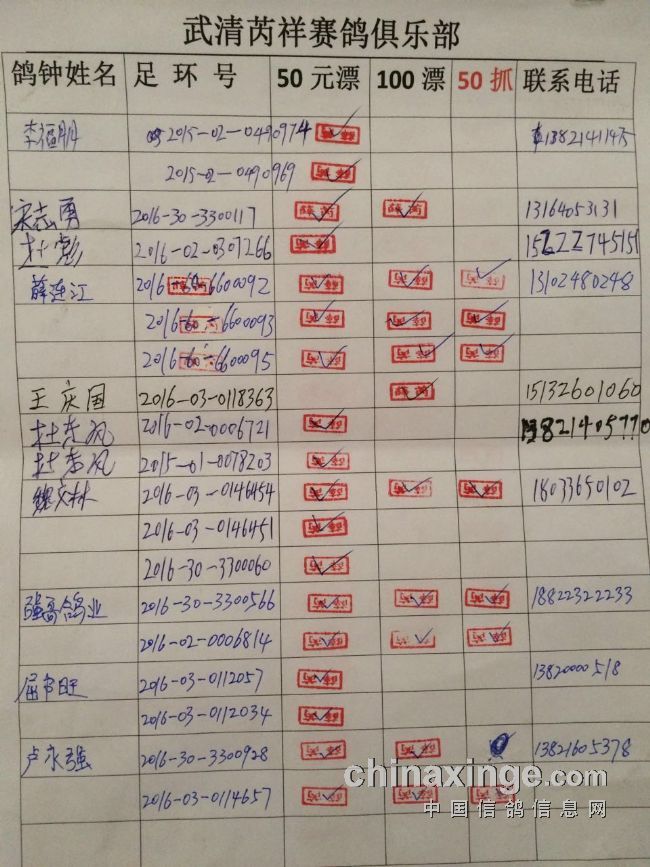 武清芮祥赛鸽俱乐部
鸽钟姓名 足环号 50元漂 100漂 50抓 联系电话
李福朋 2015-02-0490974 13821411475
2015-02-0490969
宋志勇 2016-30-3300117 13164053131
杜彭 2016-02-0307266 15222745151
薛连江 2016-6600092 13102480248
2016-6600093
2016-6600095
王庆国 2016-03-0118363 15132601060
杜秀风 2016-02-0006721 13821405770
杜秀风 2015-01-0078203
魏文林 2016-03-0146454 18033650102
2016-03-0146451
2016-30-3300060
强哥鸽业 2016-30-3300566 18822322233
2016-02-0006814
屈書旺 2016-03-0112057 13820000518
2016-03-0112034
卢永强 2016-30-3300928 13821605378
2016-03-0114657
chinaxinge.com
中国信鸽信息网